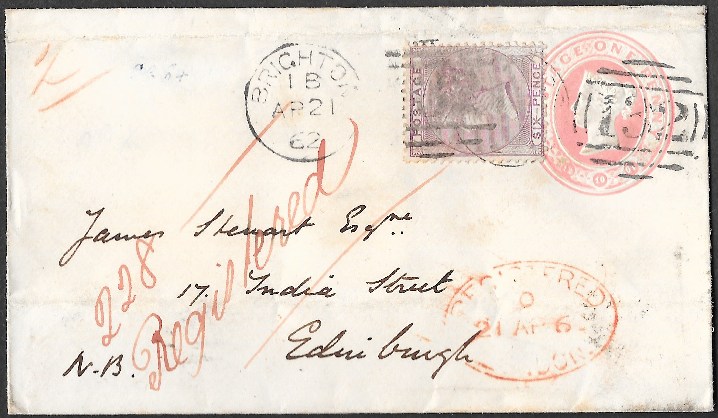 BRIGHTON
1B
AP 21
62
POSTAGE
SIX-PENCE
ONE
228
Registered
James Stewart Esqre
17. India Street
Edinburgh
N.B.
REGISTERED
21 AP 6